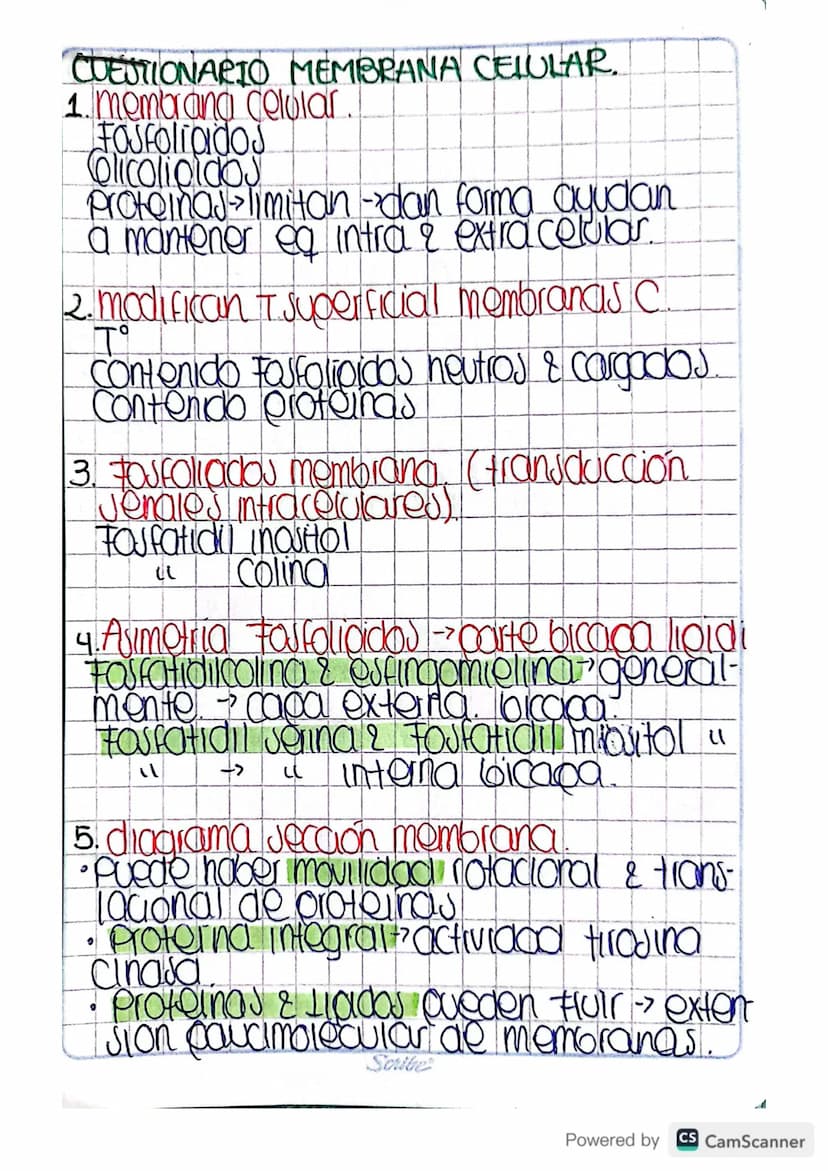 CUESTIONARIO MEMBRANA CELULAR.
1. membrana celular.
Fosfolípidos
Glicolípidos
Proteínas → limitan → dan forma ayudan
a mantener eq intra & extracelular.
2. modifican T superficial membranas C.
T°
Contenido Fosfolípidos neutros & cargados.
Contenido proteínas
3. Fosfolípidos membrana. (transducción
señales intracelulares).
Fosfatidil inositol
" colina
4. Asimetría Fosfolípidos → parte bicapa lipidi
Fosfatidilcolina & esfingomielina → general-
mente. → capa externa. bicapa.
Fosfatidil serina & Fosfatidil inositol "
" → " interna bicapa.
5. diagrama sección membrana.
• Puede haber movilidad rotacional & trans-
lacional de proteínas
• Proteína integral → actividad tirosina
cinasa.
• Proteínas & Lípidos pueden fluir → exten
sion paucimolecular de membranas.
Scribe
Powered by CS CamScanner